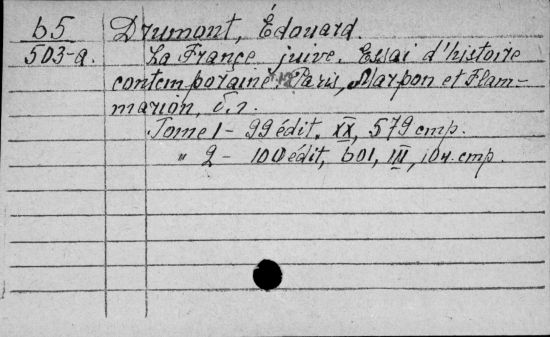 б5 Drumont, Édouard.
503-a. La France juive. Essai d'histoire
contemporaine. Paris, Marpon et Flam-
marion, б.г.
Tome 1 - 99 édit. XX, 579 стр.
" 2 - 100 édit, 601, III, 104 стр.